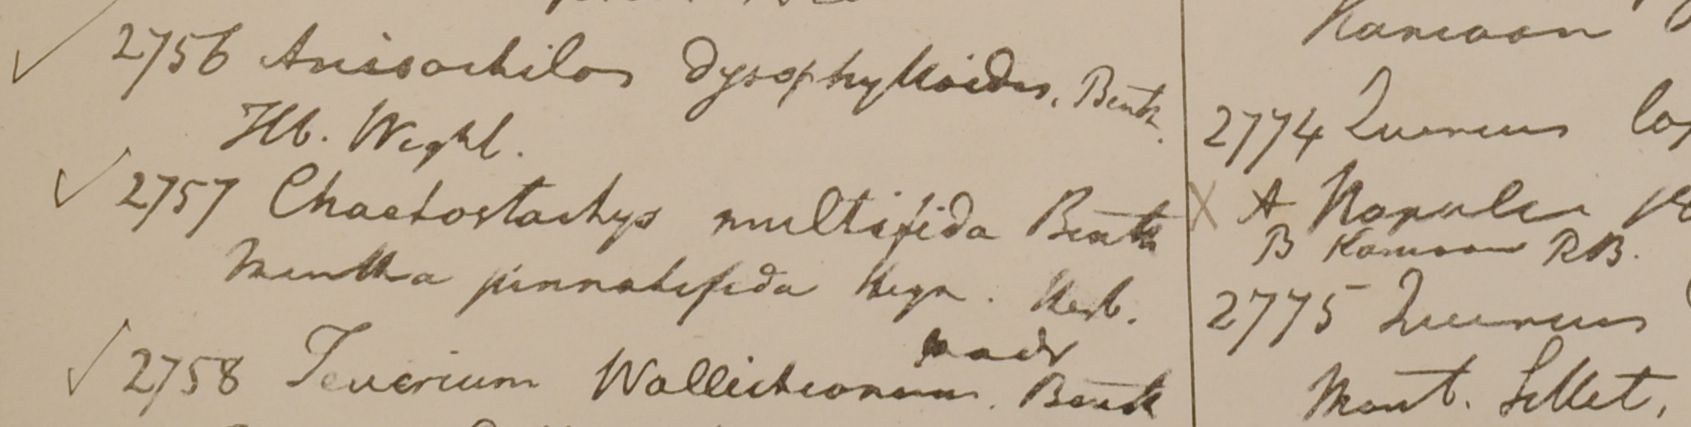 ✓ 2756 Anisochilos dysophylloides, Benth.
Hb. Wight.
✓ 2757 Chaetostachys multifida Benth
Mentha pinnatifida Heyn. Herb.
madr
✓ 2758 Teucrium Wallichianum. Benth
Kamaon
2774 Quercus
X A Napalia
B Kamaon RB.
2775 Quercus
Mont. Sillet,